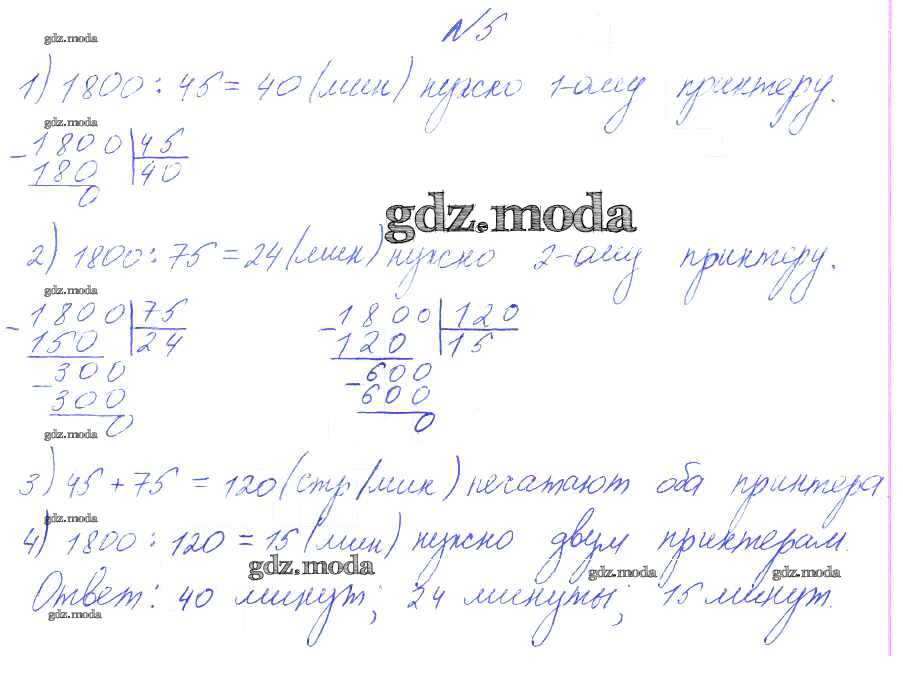 №5
gdz.moda
1) 1800 : 45 = 40 (мин) нужно 1-ому принтеру.
gdz.moda
- 1800 | 45
180 | 40
0
gdz.moda
2) 1800 : 75 = 24 (мин) нужно 2-ому принтеру.
gdz.moda
- 1800 | 75 - 1800 | 120
150 | 24 120 | 15
- 300 - 600
300 600
0 0
gdz.moda
3) 45 + 75 = 120 (стр/мин) печатают оба принтера
gdz.moda
4) 1800 : 120 = 15 (мин) нужно двум принтерам.
gdz.moda gdz.moda gdz.moda
Ответ: 40 минут; 24 минуты; 15 минут.
gdz.moda